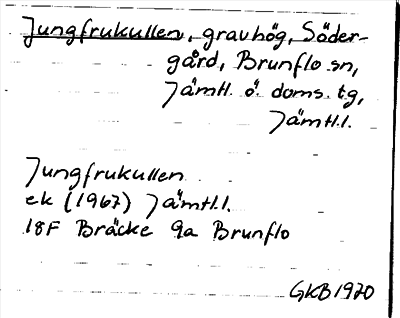 Jungfrukullen, gravhög, Söder-
gård, Brunflo sn,
Jämtl. ö. doms. tg,
Jämtl.l.
Jungfrukullen
ek (1967) Jämtl.l.
18F Bräcke 9a Brunflo
GKB 1970